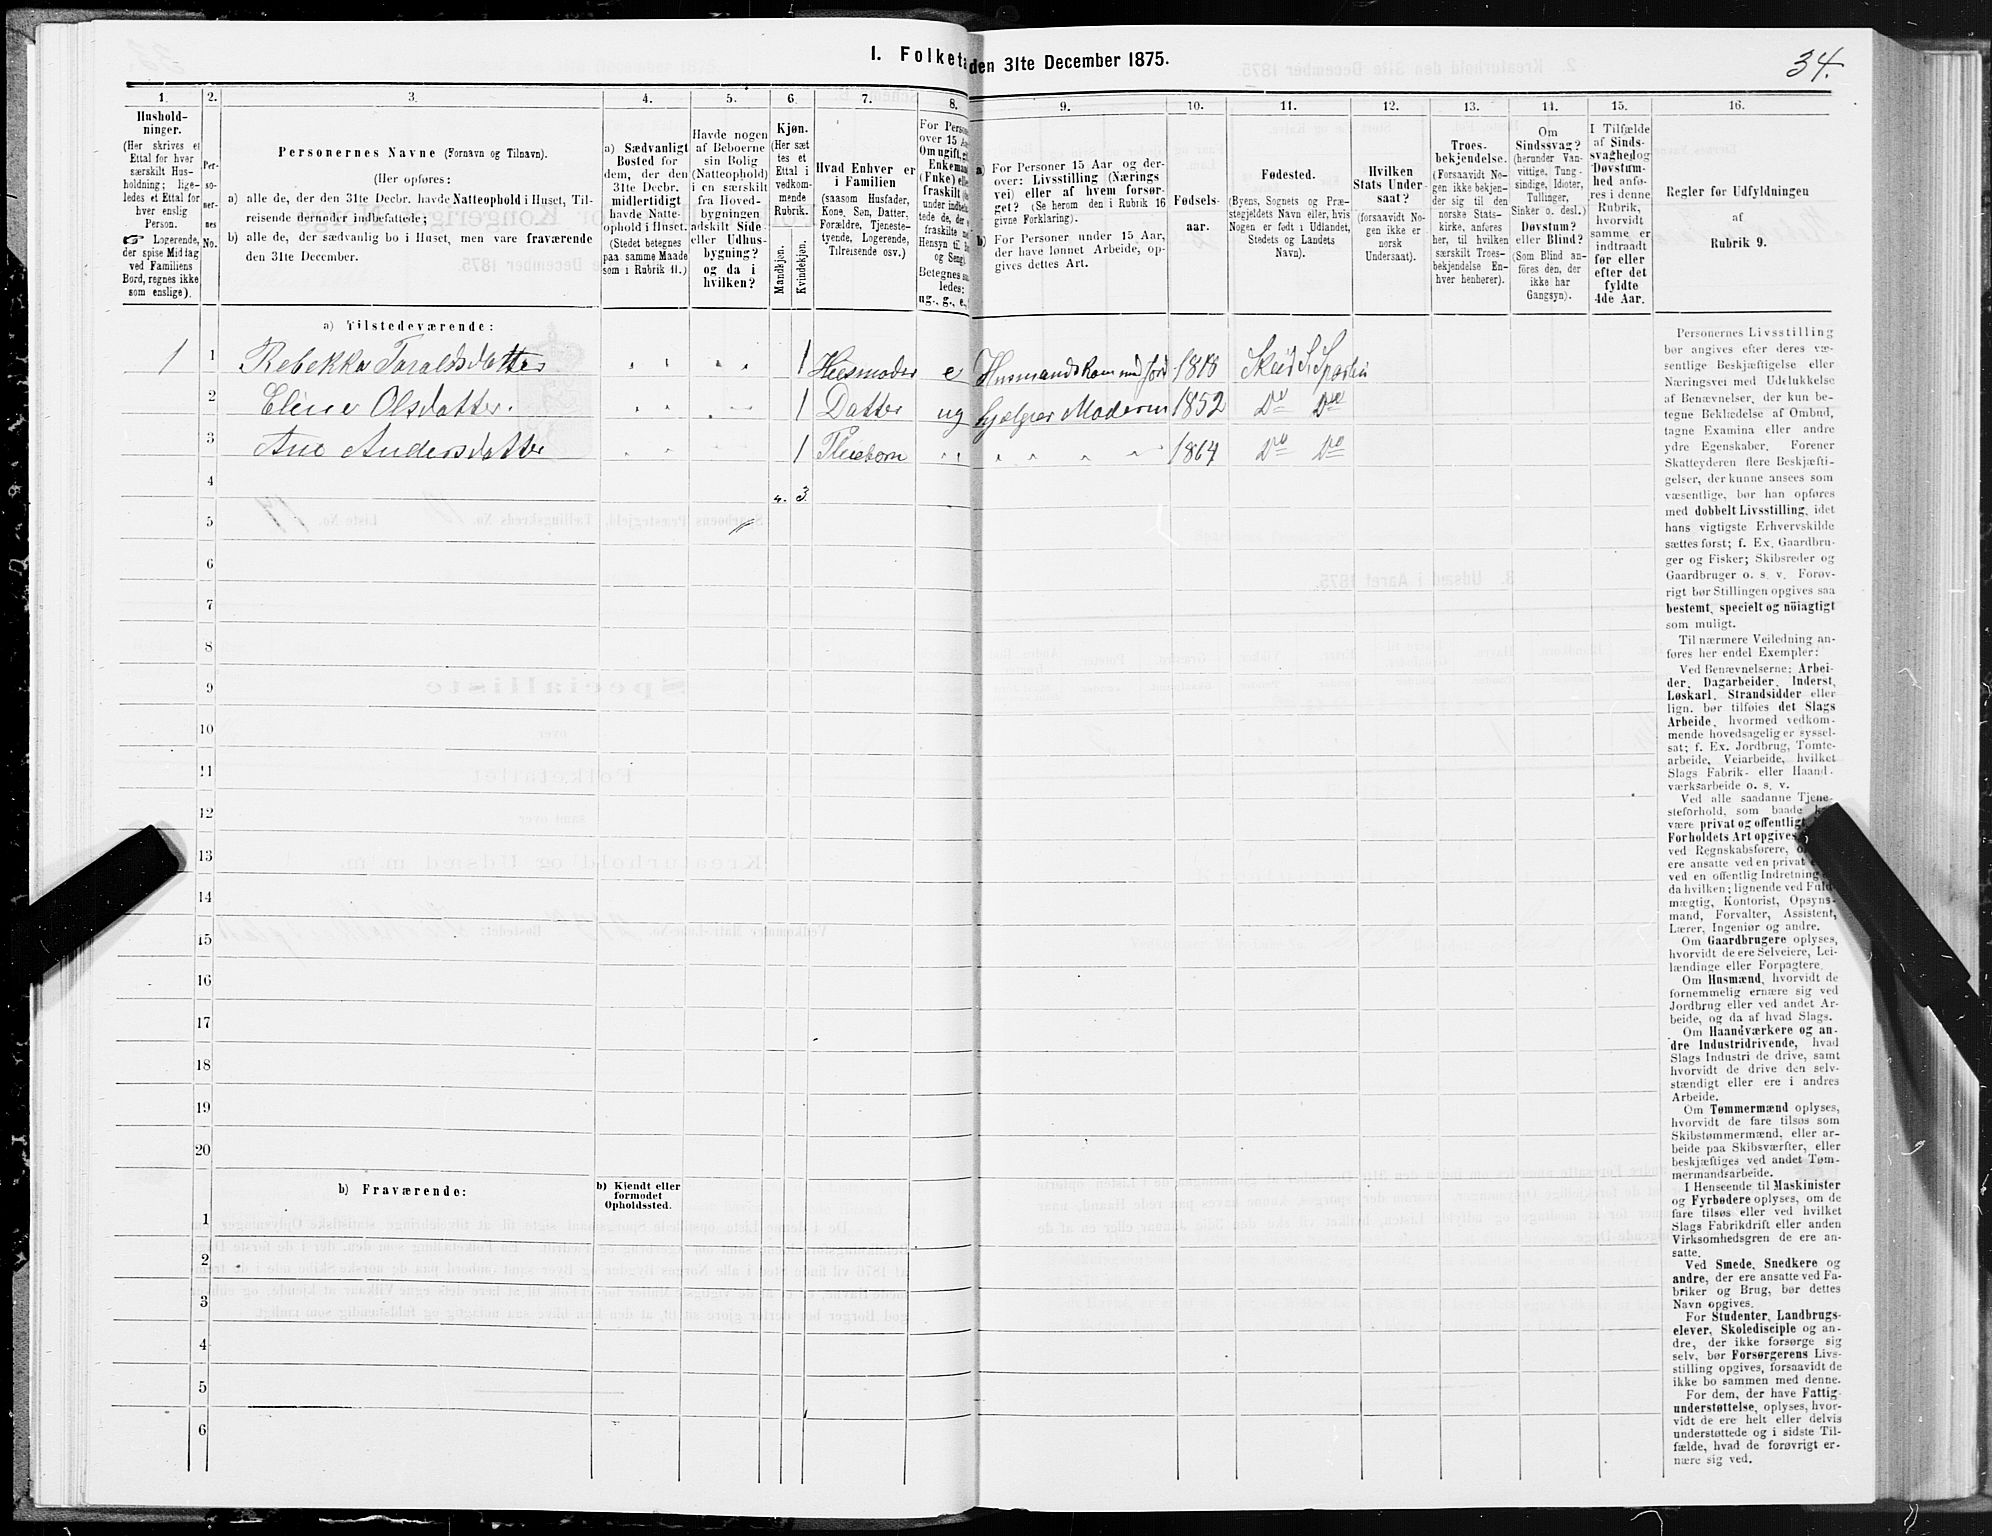 34.
I. Folketa den 31te December 1875.
1. 2. 3. 4. 5. 6. 7. 8. 9. 10. 11. 12. 13. 14. 15. 16.
Hushold-
ninger.
(Her skrives et
Ettal for hver
særskilt Hus-
holdning; lige-
ledes et Ettal for
hver enslig
Person.
☞ Logerende,
der spise Middag
ved Familiens
Bord, regnes ikke
som enslige).
Per-
so-
ner-
nes
No.
Personernes Navne (Fornavn og Tilnavn).
(Her opføres:
a) alle de, der den 31te Decbr. havde Natteophold i Huset, Til-
reisende derunder indbefattede;
b) alle de, der sædvanlig bo i Huset, men vare fraværende
den 31te December.
a) Sædvanligt
Bosted for
dem, der den
31te Decbr.
midlertidigt
havde Natte-
ophold i Huset.
(Stedet betegnes
paa samme Maade
som i Rubrik 11.)
Havde nogen
af Beboerne
sin Bolig
(Natteophold)
i en særskilt
fra Hoved-
bygningen
adskilt Side-
eller Udhus-
bygning?
og da i
hvilken?
Kjøn.
(Her sæt
tes et
Ettal i
vedkom-
mende
Rubrik.
Mandkjøn.
Kvindekjøn.
Hvad Enhver er
i Familien
(saasom Husfader,
Kone, Søn, Datter,
Forældre, Tjeneste-
tyende, Logerende,
Tilreisende osv.)
For Person
over 15 Aar
Om ugift, gi
Enkeman
(Enke) elle
fraskilt
under indbe
tede de, der
fraskilte
Hensyn til
og Seng).
Betegnes saa
ledes:
ug., g., e.,
a) For Personer 15 Aar og der-
over: Livsstilling (Nærings
vei) eller af hvem forsør-
get? (Se herom den i Rubrik 16
givne Forklaring).
b) For Personer under 15 Aar,
der have lønnet Arbeide, op-
gives dettes Art.
Fødsels-
aar.
Fødested.
(Byens, Sognets og Præ-
stegjeldets Navn eller, hvis
Nogen er født i Udlandet,
Stedets og Landets
Navn).
Hvilken
Stats Under-
saat?
(forsaavidt No-
gen ikke er
norsk
Undersaat).
Troes-
bekjendelse.
(Forsaavidt No-
gen ikke bekjen-
der sig til den
norske Stats-
kirke, anføres
her, til hvilken
særskilt Troes-
bekjendelse En-
hver henhører).
Om
Sindssvag?
(herunder Van-
vittige, Tung-
sindige, Idioter,
Tullinger,
Sinker o. desl.)
Døvstum?
eller Blind?
(Som Blind an-
føres den, der
ikke har
Gangsyn).
I Tilfælde
af Sinds-
svaghed og
Døvstum-
hed anfø-
res i denne
Rubrik,
hvorvidt
samme er
indtraadt
før eller
efter det
fyldte
4de Aar.
Regler for Udfyldningen
af
Rubrik 9.
a) Tilstedeværende:
1 1 Rebekka Taraldsdatter " " " " 1 Huusmoder e Husmandskone med Jord 1818 Skeid S
2 Eline Olsdatter. " " " 1 Datter ug hjelper Moderen 1852 Do Do
3 Ane Andersdatter " " " " 1 Pleiebarn " " " " " " 1864 Do Do
4
" 3
5
6
7
8
9
10
11
12
13
14
15
16
17
18
19
20
b) Fraværende:
b) Kjendt eller
formodet
Opholdssted.
1
2
3
4
5
6
Personernes Livsstilling
bør angives efter deres væ-
sentlige Beskjæftigelse eller
Næringsvei med Udelukkelse
af Benævnelser, der kun be-
tegne Beklædelse af Ombud,
tagne Examina eller andre
ydre Egenskaber. Forener
Skatteyderen flere Beskjæfti-
gelser, der kunne ansees som
væsentlige, bør han opføres
med dobbelt Livsstilling, idet
hans vigtigste Erhvervskilde
sættes først; f. Ex. Gaardbru-
ger og Fisker; Skibsreder og
Gaardbruger o. s. v. Forøv-
rigt bør Stillingen opgives saa
bestemt, specielt og nöiagtigt
som muligt.
Til nærmere Veiledning an-
føres her endel Exempler:
Ved Benævnelserne: Arbei-
der, Dagarbeider, Inderst,
Løskarl, Strandsidder eller
lign. bør tilføies det Slags
Arbeide, hvormed vedkom-
mende hovedsagelig er syssel-
sat; f. Ex. Jordbrug, Tomte-
arbeide, Veiarbeide, hvilket
Slags Fabrik- eller Haand-
værksarbeide o. s. v.
Ved alle saadanne Tjene-
steforhold, som baade k
være privat og offentligt
Forholdets Art opgives
ved Regnskabsførere, o
ere ansatte ved en privat
ved en offentlig Indretning
da hvilken; lignende ved Fuld
mægtig, Kontorist, Opsyns-
mand, Forvalter, Assistent,
Lærer, Ingeniør og andre.
Om Gaardbrugere oplyses,
hvorvidt de ere Selveiere, Lei-
lændinge eller Forpagtere.
Om Husmænd, hvorvidt de
fornemmelig ernære sig ved
Jordbrug eller ved andet Ar-
beide, og da af hvad Slags.
Om Haandværkere og an-
dre Industridrivende, hvad
Slags Industri de drive, samt
hvorvidt de drive den selv-
stændigt eller ere i andres
Arbeide.
Om Tømmermænd oplyses,
hvorvidt de fare tilsøs som
Skibstømmermænd, eller ar-
beide paa Skibsværfter, eller
beskjæftiges ved andet Tøm-
mermandsarbeide.
I Henseende til Maskinister
og Fyrbødere oplyses, om de
fare tilsøs eller ved hvilket
Slags Fabrikdrift eller anden
Virksomhedsgren de ere an-
satte.
Ved Smede, Snedkere og
andre, der ere ansatte ved Fa-
briker og Brug, bør dettes
Navn opgives.
For Studenter, Landbrugs-
elever, Skoledisciple og an-
dre, der ikke forsørge sig
selv, bør Forsørgerens Livs-
stilling opgives, forsaavidt de
ikke bo sammen med denne.
For dem, der have Fattig-
understøttelse, oplyses, hvor-
vidt de ere helt eller delvis
understøttede og i sidste Til-
fælde, hvad de forøvrigt er-
nære sig ved.